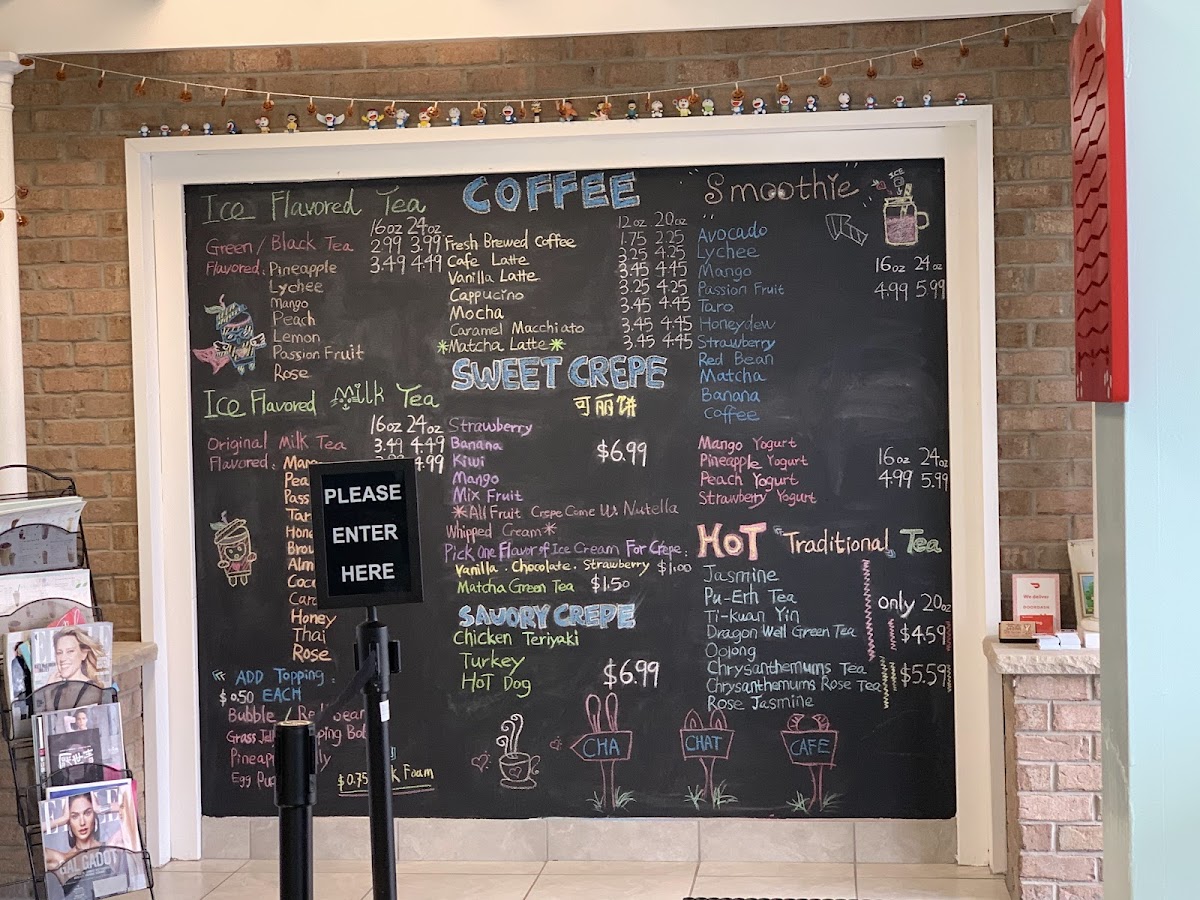 Ice Flavored Tea
16oz 24oz
Green/Black Tea 2.99 3.99
Flavored: Pineapple 3.49 4.49
Lychee
Mango
Peach
Lemon
Passion Fruit
Rose
Ice Flavored Milk Tea
16oz 24oz
Original Milk Tea 3.49 4.49
Flavored:
4.99
Honey
Thai
Rose
ADD Topping:
$0.50 EACH
Bubble
$0.75 Foam
COFFEE
12oz 20oz
Fresh Brewed Coffee 1.75 2.25
Cafe Latte 3.25 4.25
Vanilla Latte 3.45 4.45
Cappucino 3.25 4.25
Mocha 3.45 4.45
Caramel Macchiato 3.45 4.45
*Matcha Latte* 3.45 4.45
SWEET CREPE
可丽饼
Strawberry
Banana
Kiwi
Mango
Mix Fruit
$6.99
*All Fruit Crepe Come W/ Nutella
Whipped Cream*
Pick One Flavor of Ice Cream For Crepe:
Vanilla . Chocolate . Strawberry $1.00
Matcha Green Tea $1.50
SAVORY CREPE
Chicken Teriyaki
Turkey
Hot Dog
$6.99
CHA
CHAT
CAFE
"Smoothie"
ICE
Avocado
Lychee
Mango
Passion Fruit
Taro
Honeydew
Strawberry
Red Bean
Matcha
Banana
Coffee
16oz 24oz
4.99 5.99
Mango Yogurt
Pineapple Yogurt
Peach Yogurt
Strawberry Yogurt
16oz 24oz
4.99 5.99
HOT "Traditional" Tea
Jasmine
Pu-Erh Tea
Ti-Kuan Yin
Dragon Well Green Tea
Oolong
Chrysanthemums Tea
Chrysanthemums Rose Tea
Rose Jasmine
only 20oz
$4.59
$5.59
PLEASE
ENTER
HERE
We deliver
DOORDASH
GAL GADOT